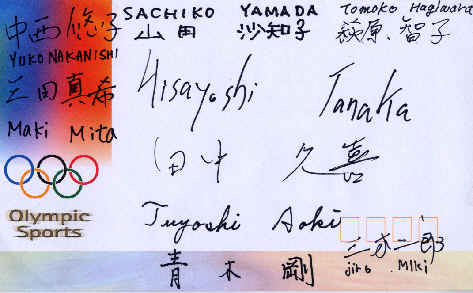 中西 悠子
YOKO NAKANISHI
三田 真希
Maki Mita
Olympic
Sports
SACHIKO YAMADA
山田 沙知子
Tomoko Hagiwara
萩原 智子
Hisayoshi Tanaka
田中 久喜
Tsuyoshi Aoki
青木 剛
三木二郎
Jiro Miki